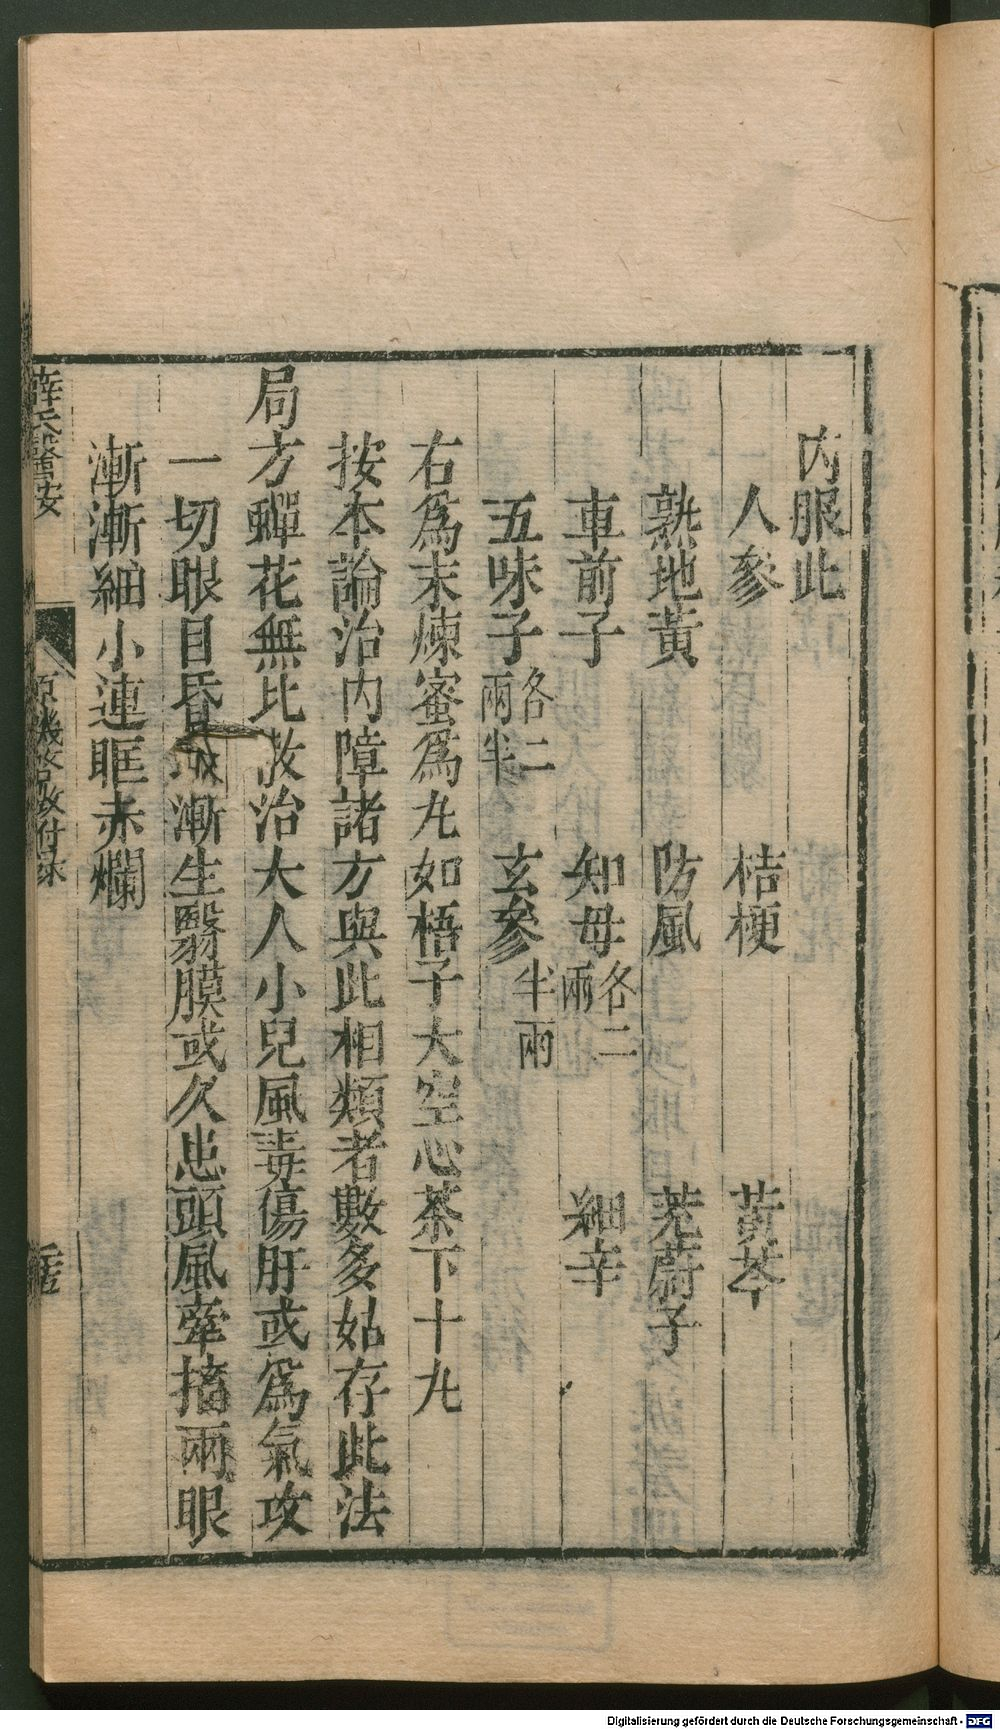 內服此
人參 桔梗 黃芩
熟地黃 防風 茺蔚子
車前子 知母各二兩 細辛
五味子各二兩半 玄參半兩
右爲末煉蜜爲丸如梧子大空心茶下十丸
按本論治內障諸方與此相類者數多姑存此法
局方蟬花無比散治大人小兒風毒傷肝或爲氣攻
一切眼目昏漸生翳膜或久患頭風牽搐兩眼
漸漸細小連眶赤爛
薛氏醫按
原機啓微付录
Digitalisierung gefördert durch die Deutsche Forschungsgemeinschaft - DFG